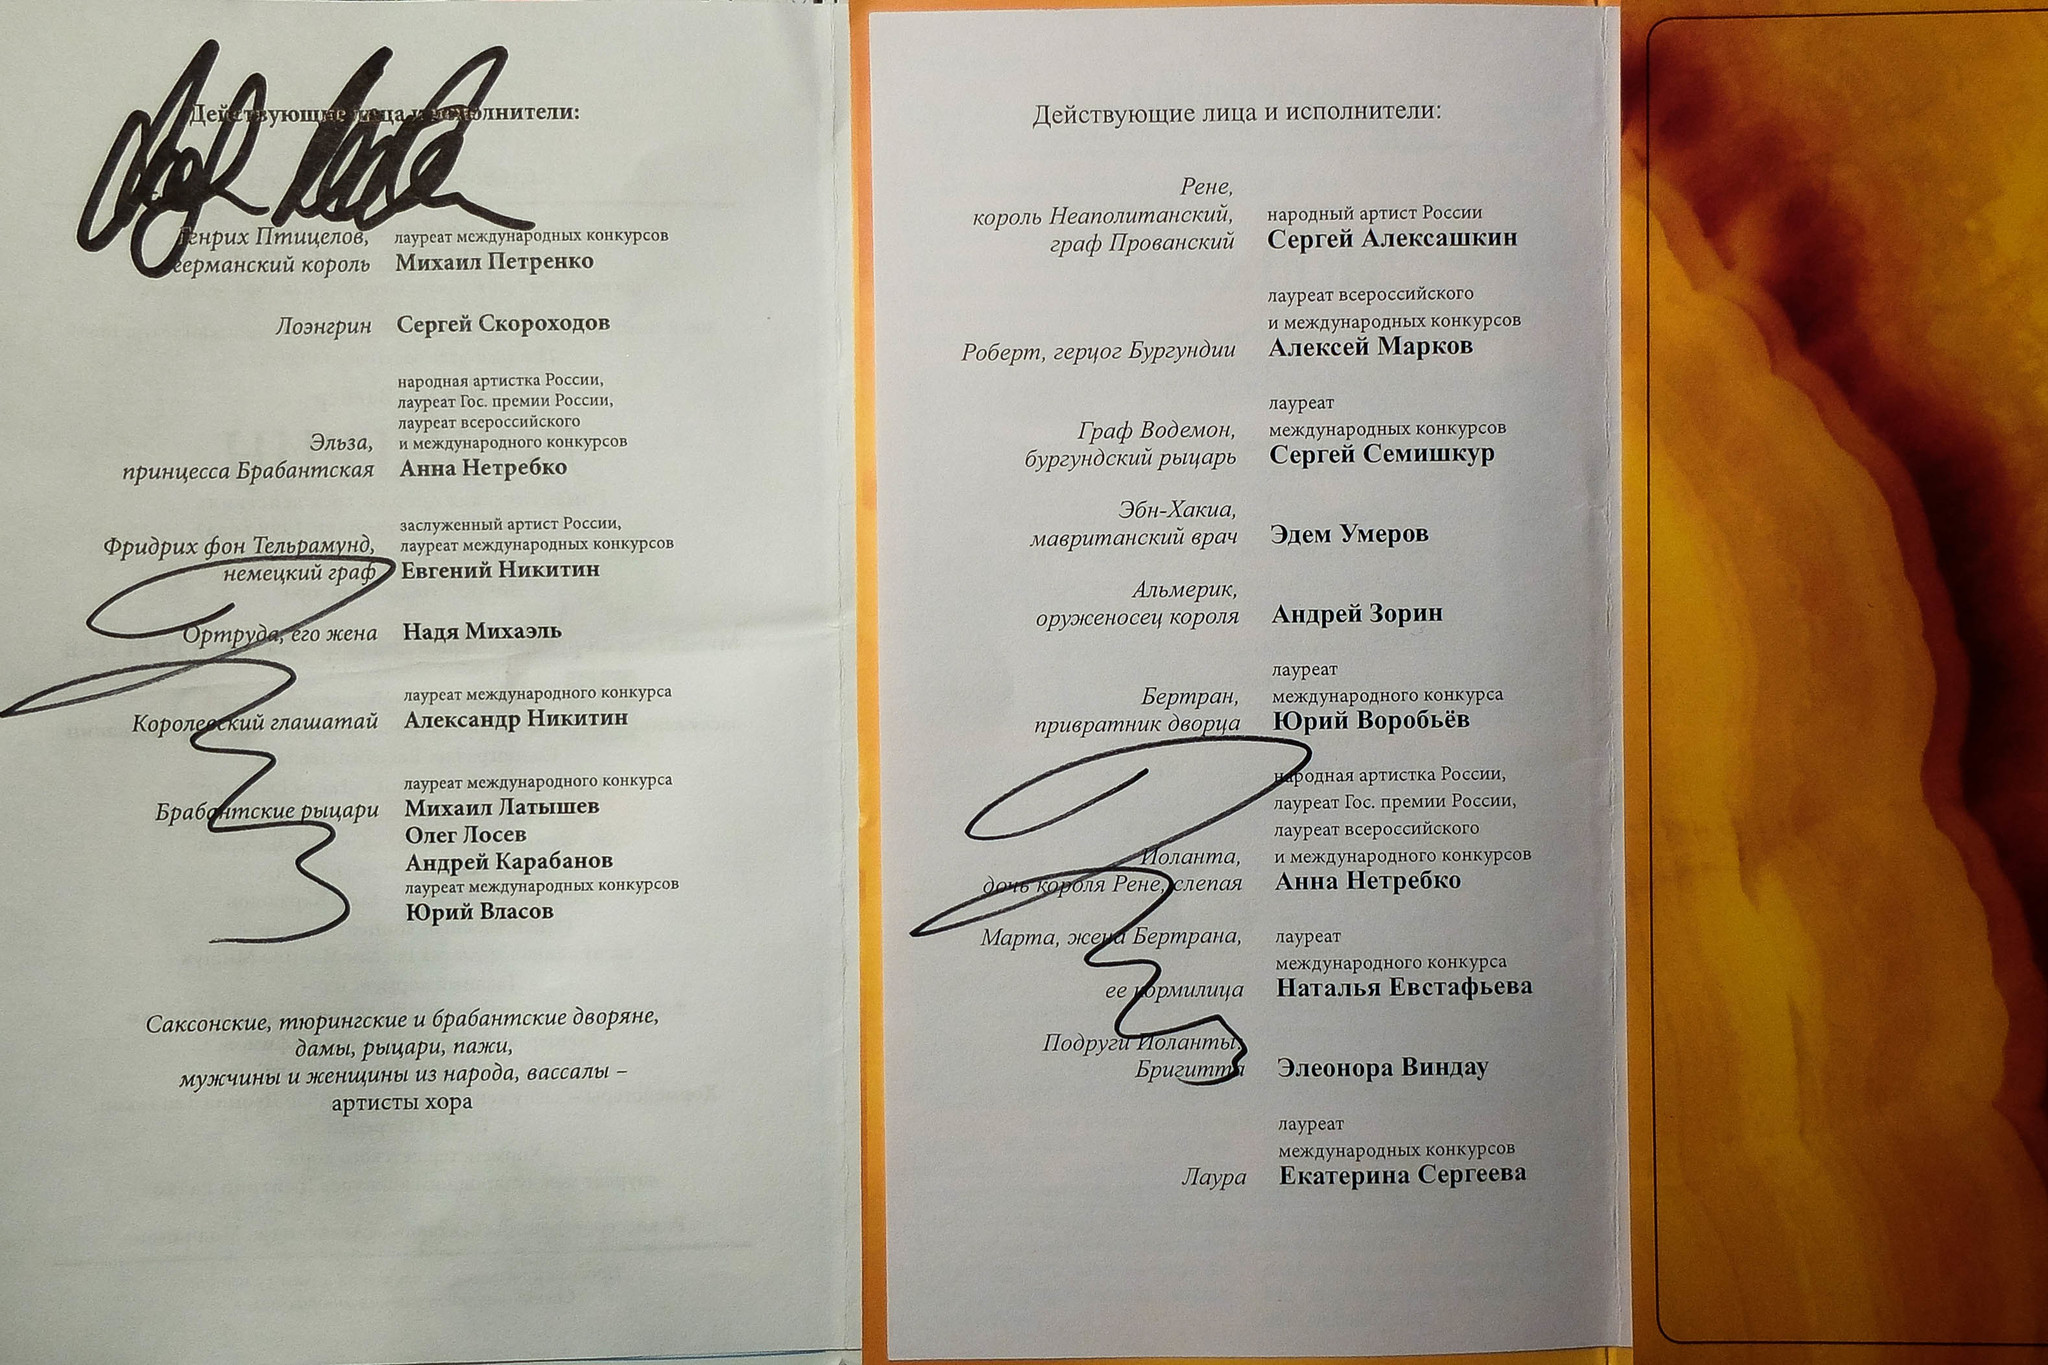 Действующие лица и исполнители:
Генрих Птицелов, лауреат международных конкурсов
германский король Михаил Петренко
Лоэнгрин Сергей Скороходов
народная артистка России,
лауреат Гос. премии России,
лауреат всероссийского
Эльза, и международного конкурсов
принцесса Брабантская Анна Нетребко
заслуженный артист России,
Фридрих фон Тельрамунд, лауреат международных конкурсов
немецкий граф Евгений Никитин
Ортруда, его жена Надя Михаэль
лауреат международного конкурса
Королевский глашатай Александр Никитин
лауреат международного конкурса
Брабантские рыцари Михаил Латышев
Олег Лосев
Андрей Карабанов
лауреат международных конкурсов
Юрий Власов
Саксонские, тюрингские и брабантские дворяне,
дамы, рыцари, пажи,
мужчины и женщины из народа, вассалы –
артисты хора
Действующие лица и исполнители:
Рене,
король Неаполитанский, народный артист России
граф Прованский Сергей Алексашкин
лауреат всероссийского
и международных конкурсов
Роберт, герцог Бургундии Алексей Марков
лауреат
Граф Водемон, международных конкурсов
бургундский рыцарь Сергей Семишкур
Эбн-Хакиа,
мавританский врач Эдем Умеров
Альмерик,
оруженосец короля Андрей Зорин
лауреат
Бертран, международного конкурса
привратник дворца Юрий Воробьёв
народная артистка России,
лауреат Гос. премии России,
лауреат всероссийского
Иоланта, и международного конкурсов
дочь короля Рене, слепая Анна Нетребко
Марта, жена Бертрана, лауреат
международного конкурса
ее кормилица Наталья Евстафьева
Подруги Иоланты:
Бригитта Элеонора Виндау
лауреат
международных конкурсов
Лаура Екатерина Сергеева